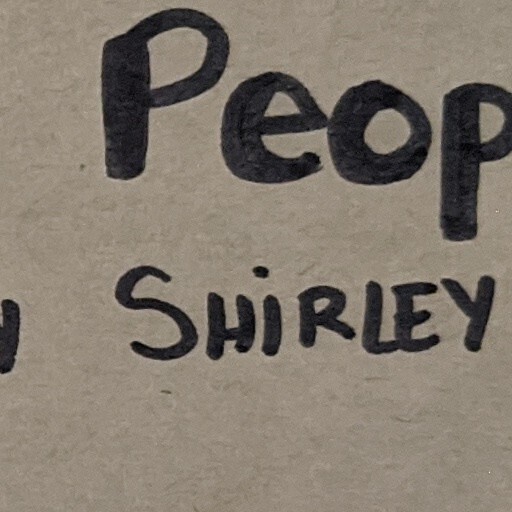 Peop
SHiRLEY